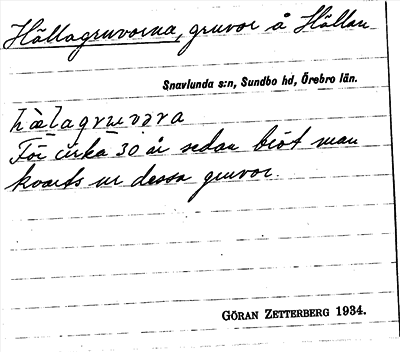 Hållagruvorna, gruvor å Hållan
Snavlunda s:n, Sundbo hd, Örebro län.
hælagruvəra
För cirka 30 år sedan bröt man
kvarts ur dessa gruvor.
GÖRAN ZETTERBERG 1934.